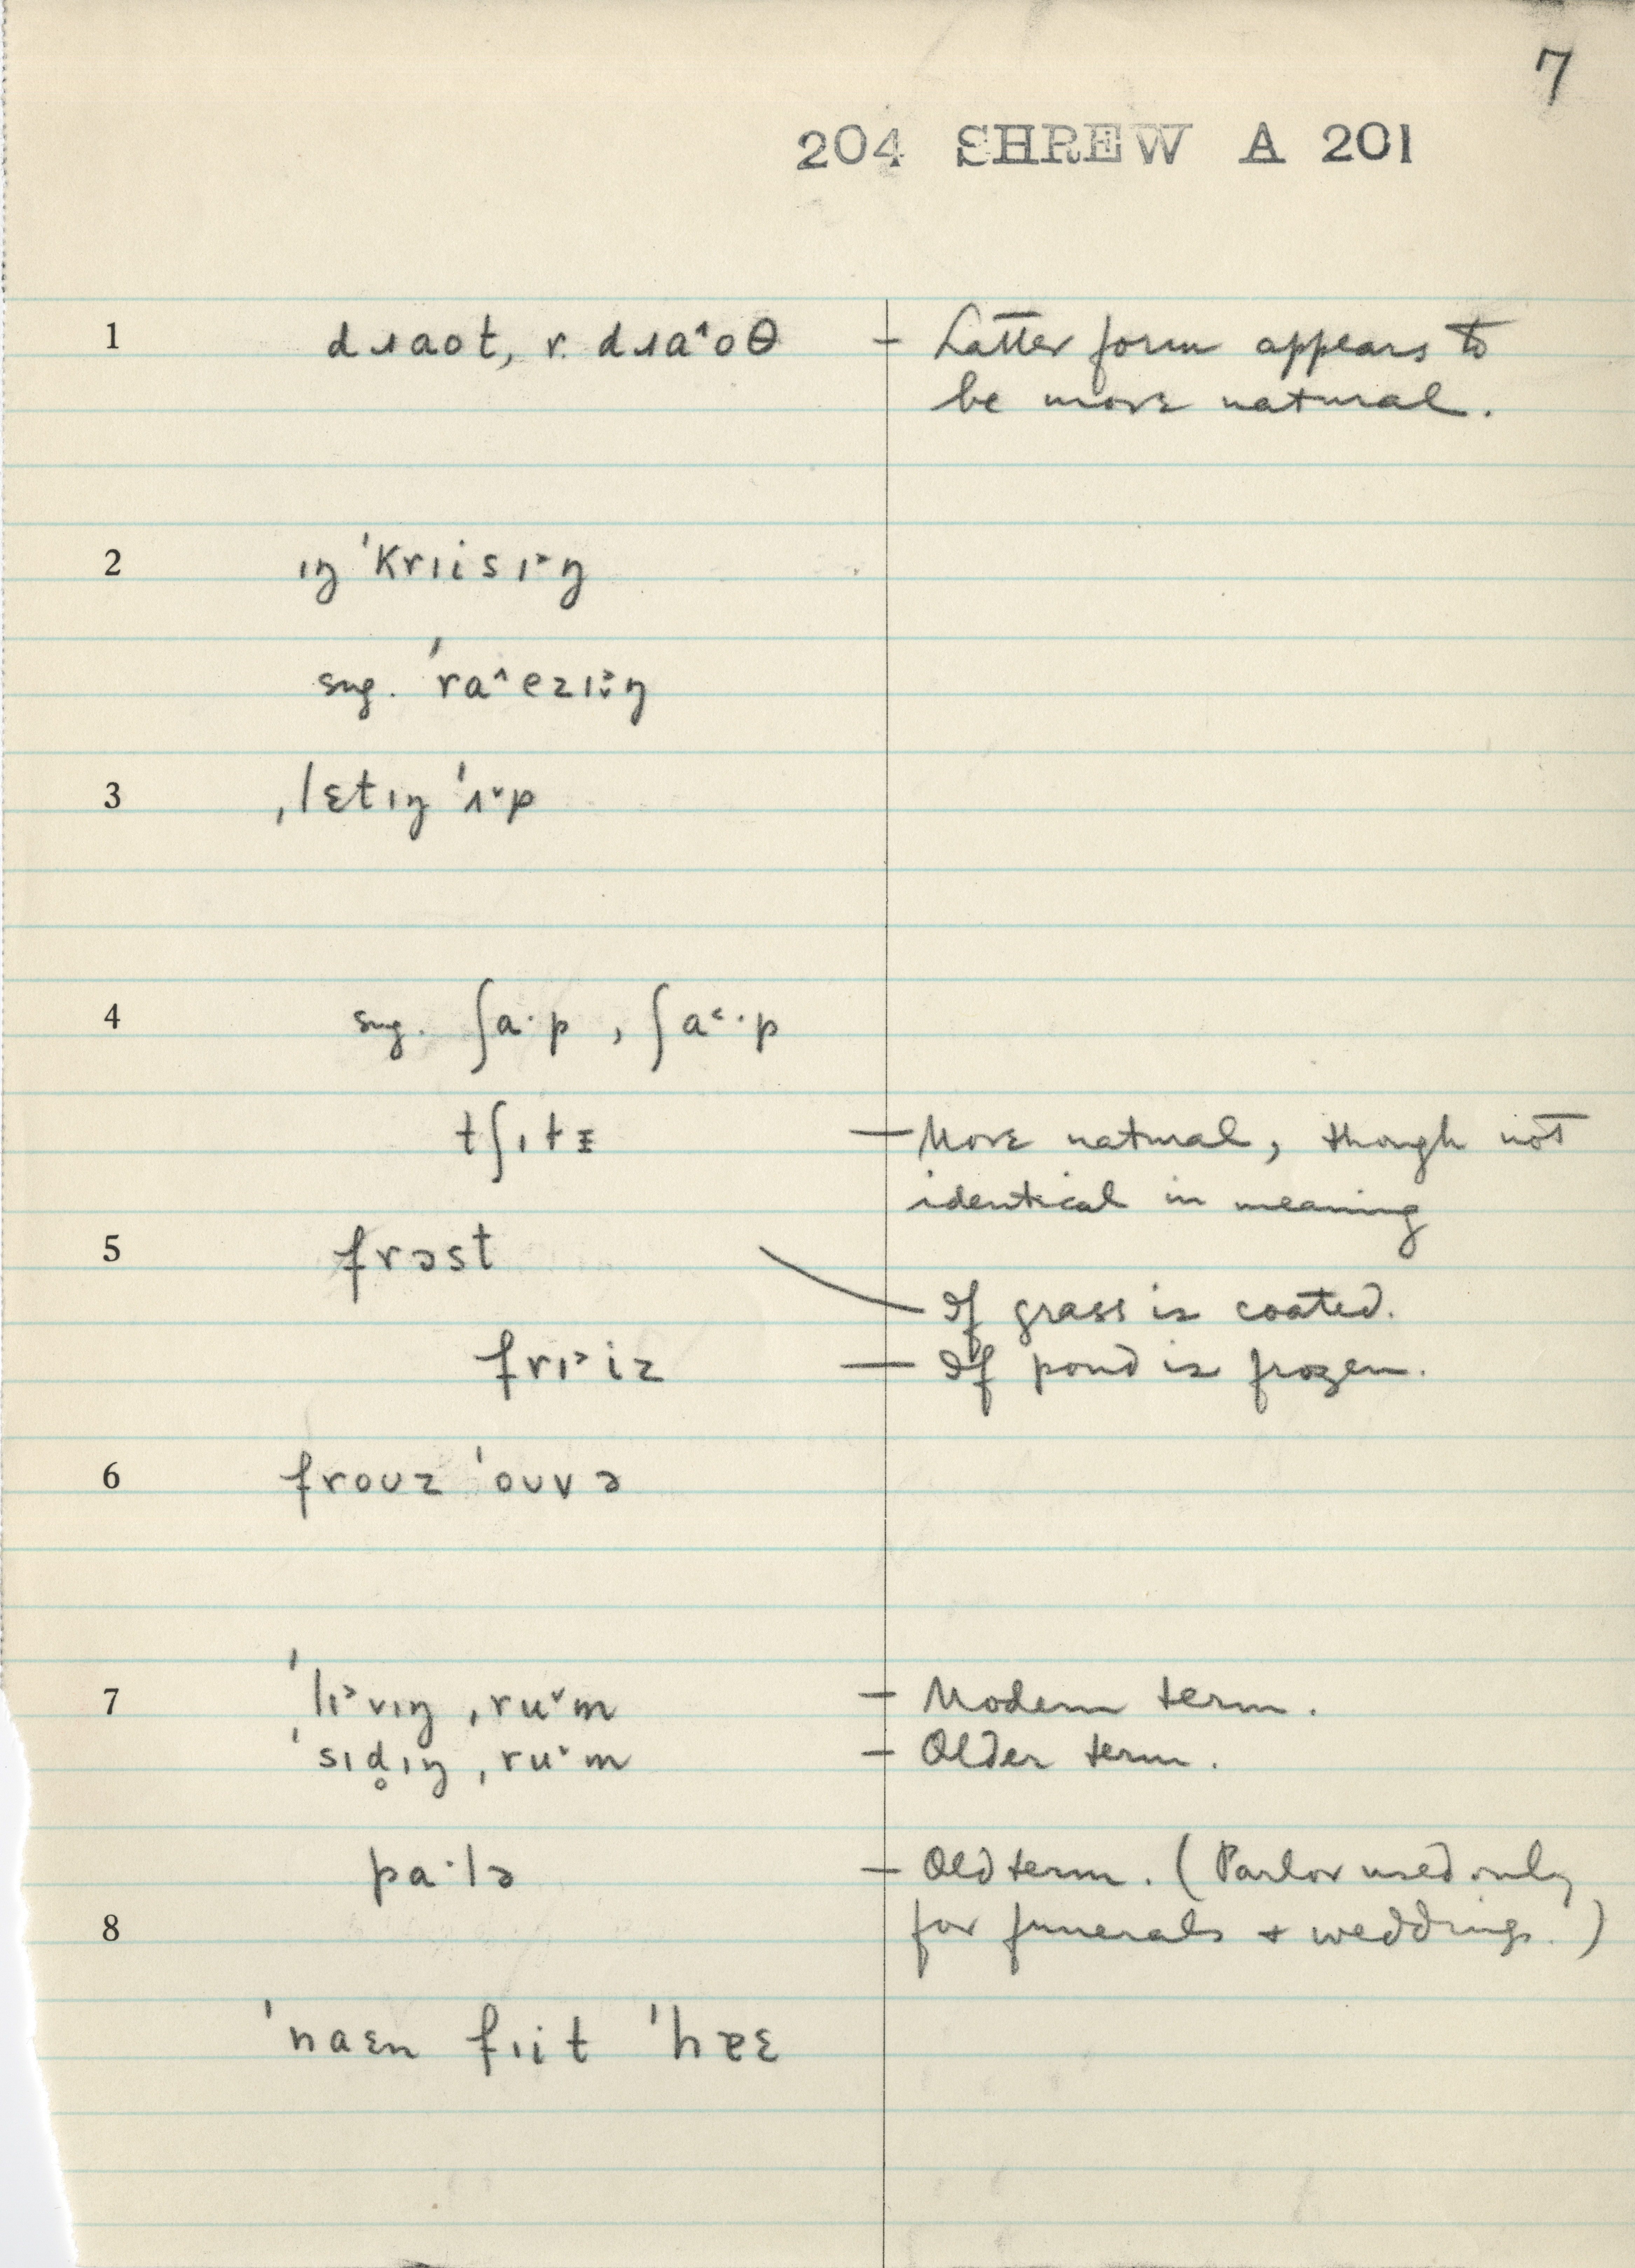 7
204 SHREW A 201
1 dɹaot, r. dɹaˆoθ – Latter form appears to
be more natural.
2 ɪŋ ˈkrɪisɪ˃ŋ
sug. ˈraˆezɪ˃ŋ
3 ˌlɛtɪŋ ˈʌ˅p
4 sug. ʃa·p , ʃa˂·p
tʃɪtɨ — More natural, though not
identical in meaning
5 frɔst
If grass is coated.
frɪ˃iz — If pond is frozen.
6 frouz ˈouvə
7 ˈlɪ˃vɪŋ ˌru˅m – Modern term.
ˈsɪd̥ɪŋ ˌru˅m – Older term.
pa·lə – Old term. (Parlor used only
8 for funerals + weddings.)
ˈnaɛn fɪit ˈhɐɛ